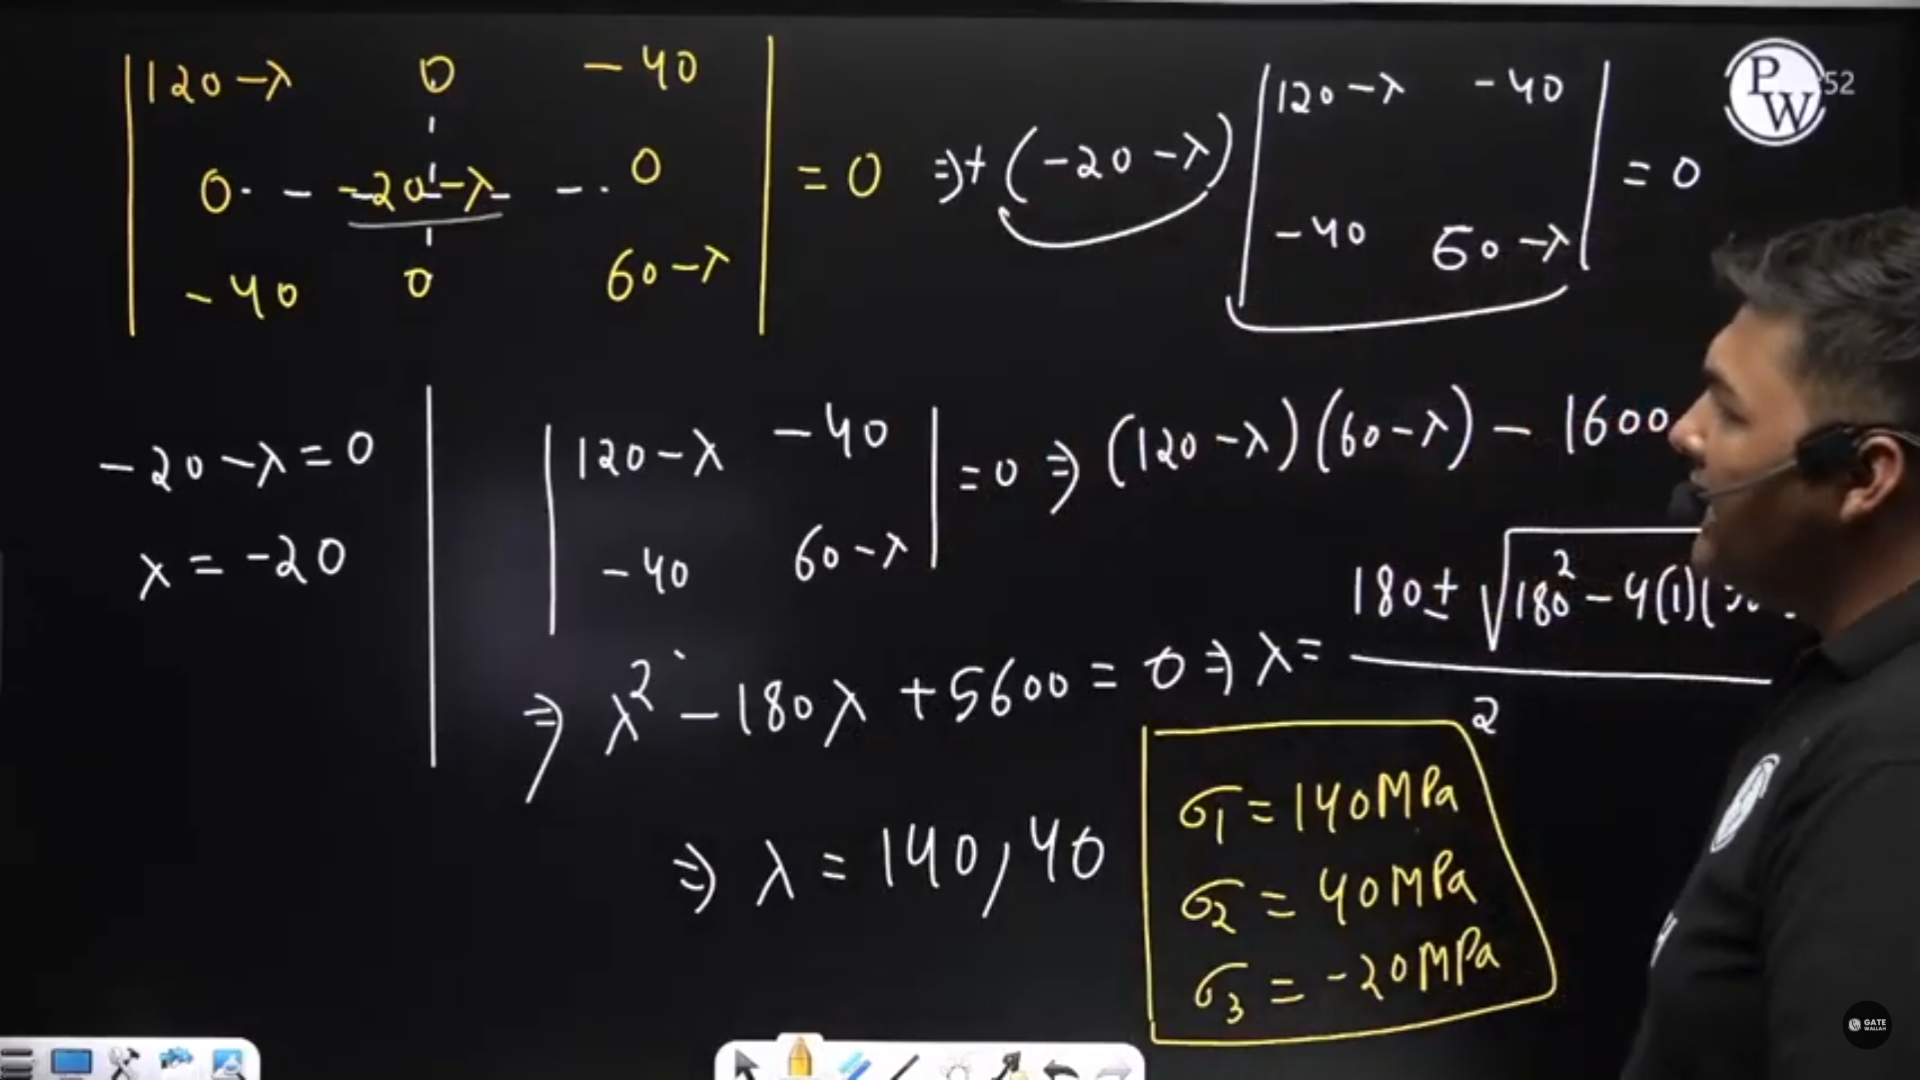 |120-λ 0 -40|
|0 -20-λ 0| = 0 ⇒ +(-20-λ) |120-λ -40| = 0
|-40 0 60-λ| |-40 60-λ|
PW
52
-20-λ=0
λ = -20
|120-λ -40| = 0 ⇒ (120-λ)(60-λ) - 1600
|-40 60-λ|
⇒ λ² - 180λ + 5600 = 0 ⇒ λ = 180 ± √180² - 4(1)(
2
⇒ λ = 140, 40
σ1 = 140MPa
σ2 = 40MPa
σ3 = -20MPa
GATE
WALLAH